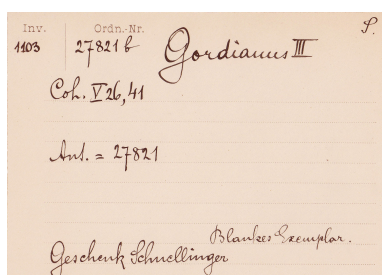 Inv. Ordn.-Nr. S.
1103 27821 b Gordianus III
Coh. V 26, 41
Ans. = 27821
Blankes Exemplar.
Geschenk Schnellinger